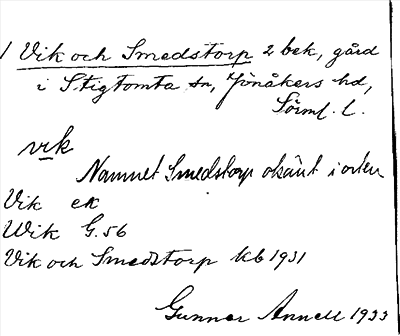 1 Vik och Smedstorp 2 bek, gård
i Stigtomta sn, Jönåkers hd,
Sörml. l.
vik
Namnet Smedstorp okänt i orten
Vik ek
Wik G.56
Vik och Smedstorp kb 1931
Gunnar Annell 1933